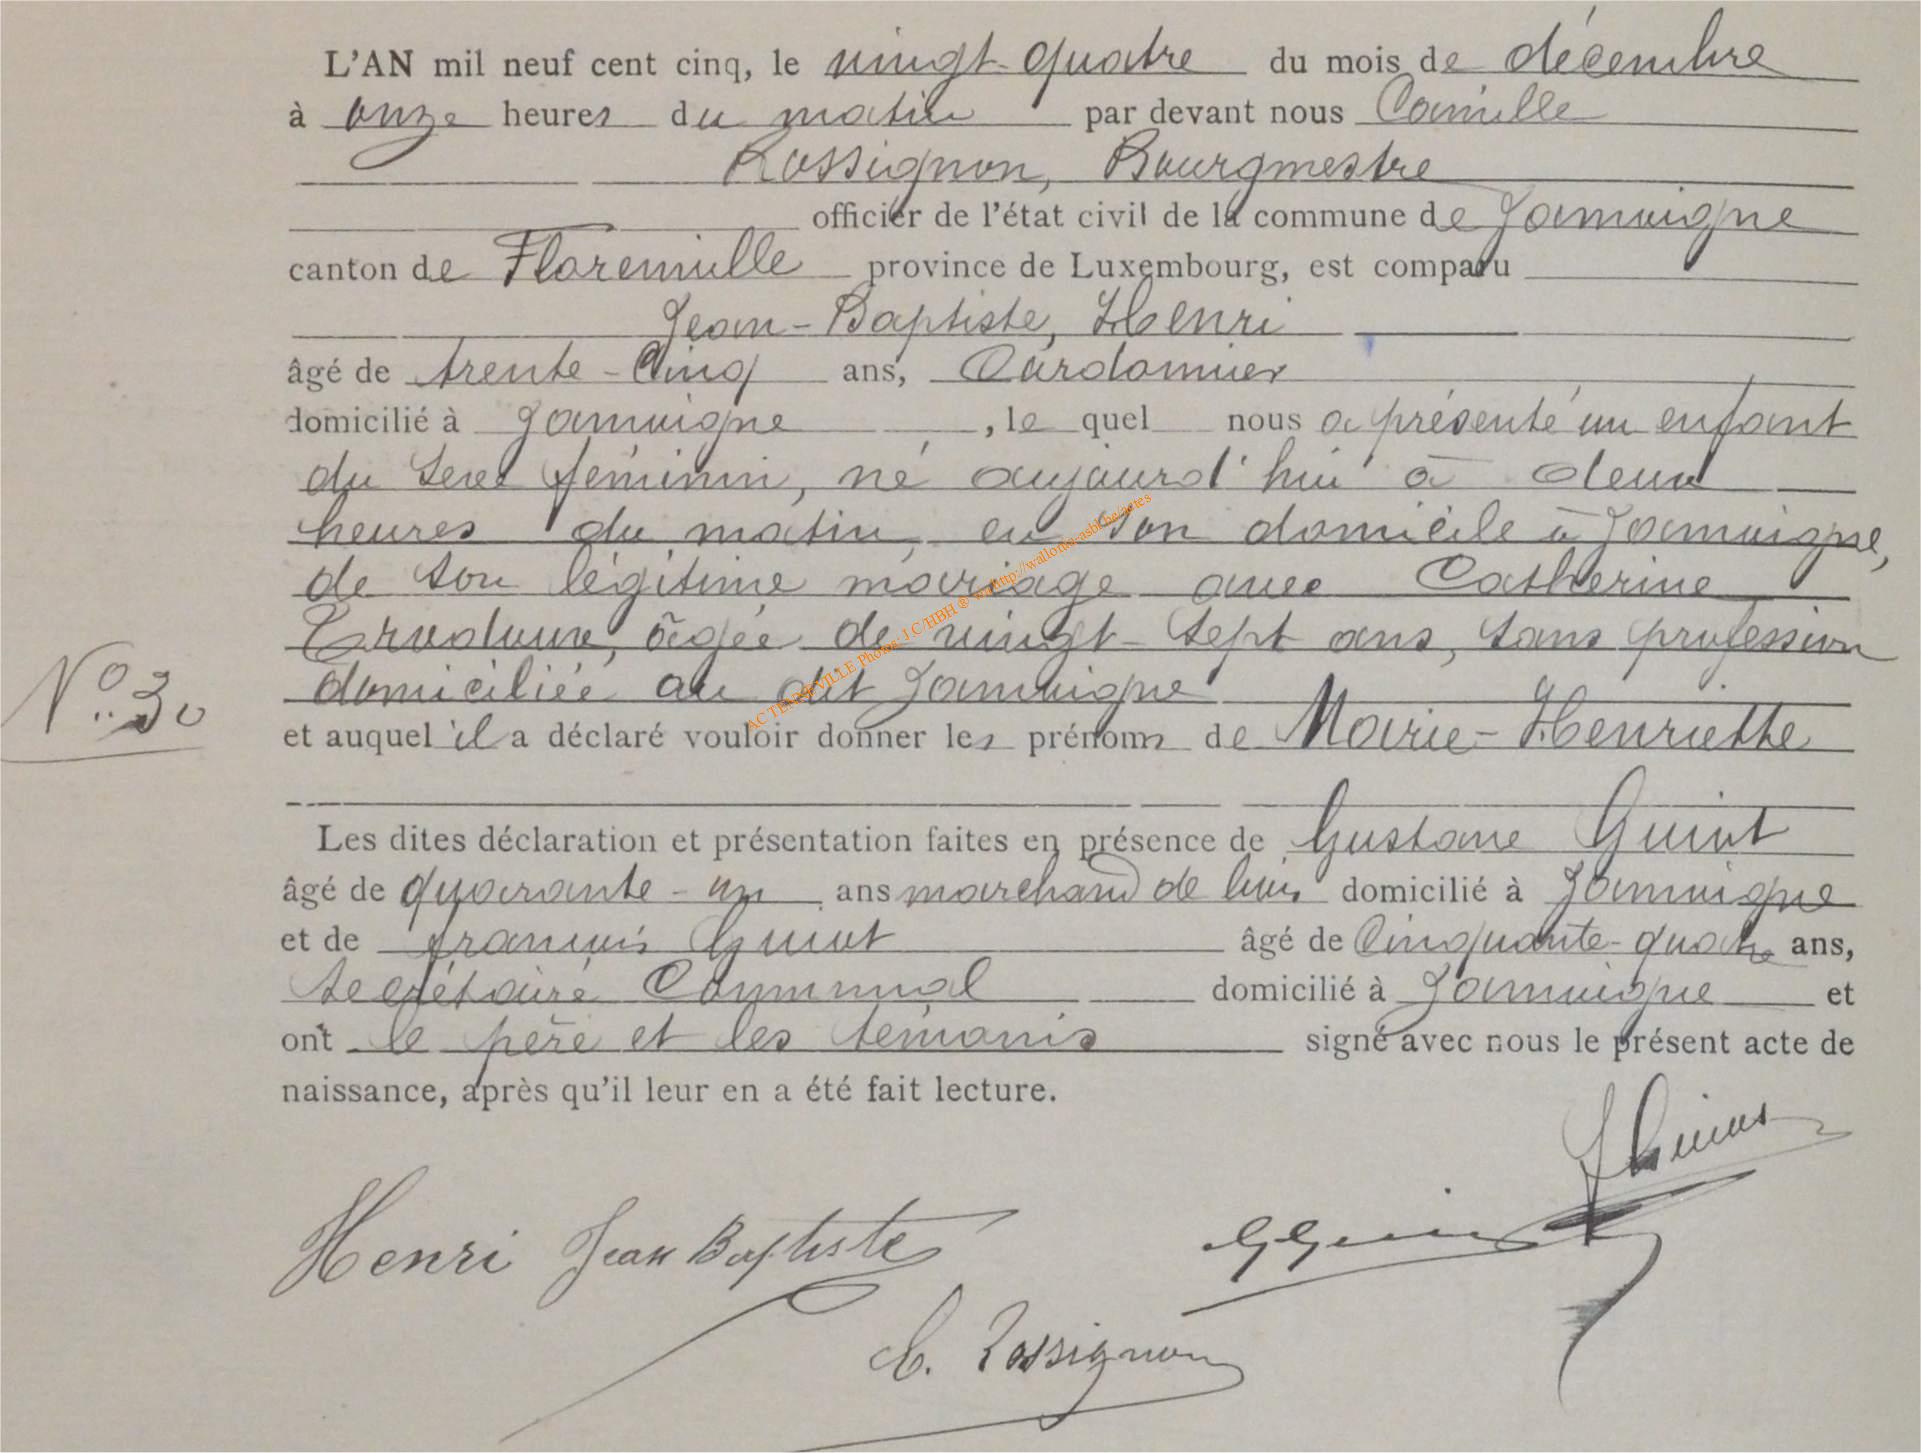 L'AN mil neuf cent cinq, le vingt-quatre du mois de décembre
à onze heures du matin par devant nous Camille
Rossignon, Bourgmestre
officier de l'état civil de la commune de Jamoigne
canton de Florenville province de Luxembourg, est comparu
Jean-Baptiste, Henri
âgé de trente-Cinq ans, Cordonnier
domicilié à Jamoigne, le quel nous a présenté un enfant
du sexe féminin, né aujourd'hui à deux
heures du matin, en son domicile à Jamoigne,
de son légitime mariage avec Catherine
âgée de vingt-sept ans, sans profession
domiciliée au dit Jamoigne
N° 30
et auquel il a déclaré vouloir donner les prénoms de Marie-Henriette
Les dites déclaration et présentation faites en présence de Gustave Guiot
âgé de quarante-un ans marchand de bois domicilié à Jamoigne
et de françois Guiot âgé de Cinquante-quatre ans,
secrétaire Communal domicilié à Jamoigne et
ont le père et les témoins signé avec nous le présent acte de
naissance, après qu'il leur en a été fait lecture.
Henri Jean Baptiste
C. Rossignon
http://wallonia-asbl.be/actes